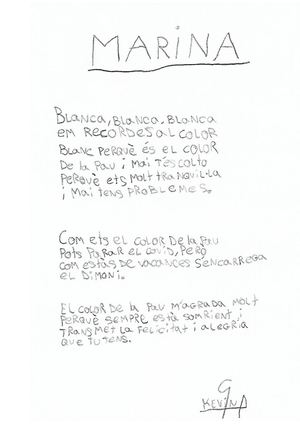 MARINA
BLANCA, BLANCA, BLANCA
EM RECORDES AL COLOR
BLANC PERQUÈ ÉS EL COLOR
DE LA PAU I MAI TÉS COLTO
PERQUÈ ETS MOLT TRANQUIL·LA
I MAI TENS PROBLEMES.
COM ETS EL COLOR DE LA PAU
POTS PARAR EL COVID, PERÒ
COM ESTAS DE VACANCES S'ENCARREGA
EL DIMONI.
EL COLOR DE LA PAU M'AGRADA MOLT
PERQUÈ SEMPRE ESTÀ SOMRIENT I
TRANSMET LA FELICITAT I ALEGRIA
QUE TU TENS.
KEVIN